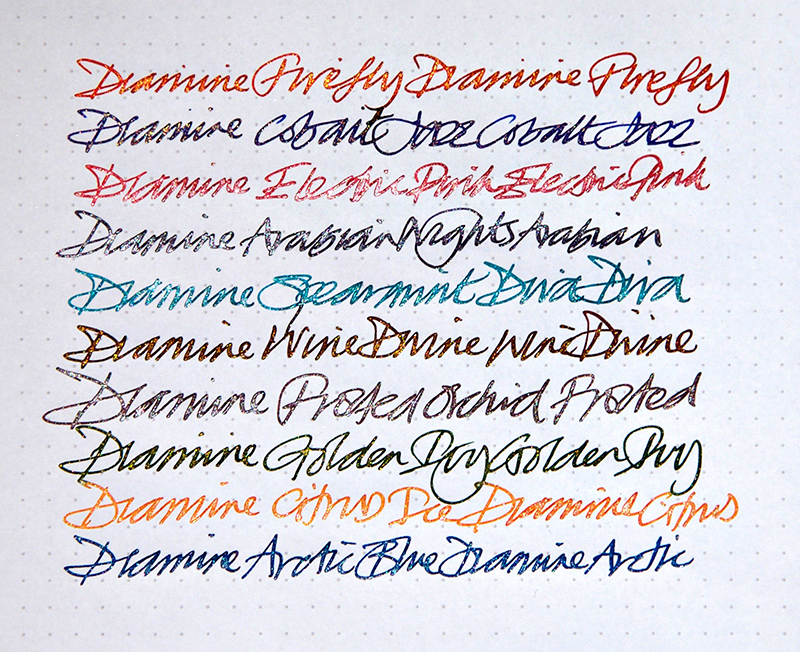 Diamine Firefly Diamine Firefly
Diamine Cobalt Jazz Cobalt Jazz
Diamine Electric Pink Electric Pink
Diamine Arabian Nights Arabian
Diamine Spearmint Diva Diva
Diamine Wine Divine Wine Divine
Diamine Frosted Orchid Frosted
Diamine Golden Ivy Golden Ivy
Diamine Citrus Ice Diamine Citrus
Diamine Arctic Blue Diamine Arctic